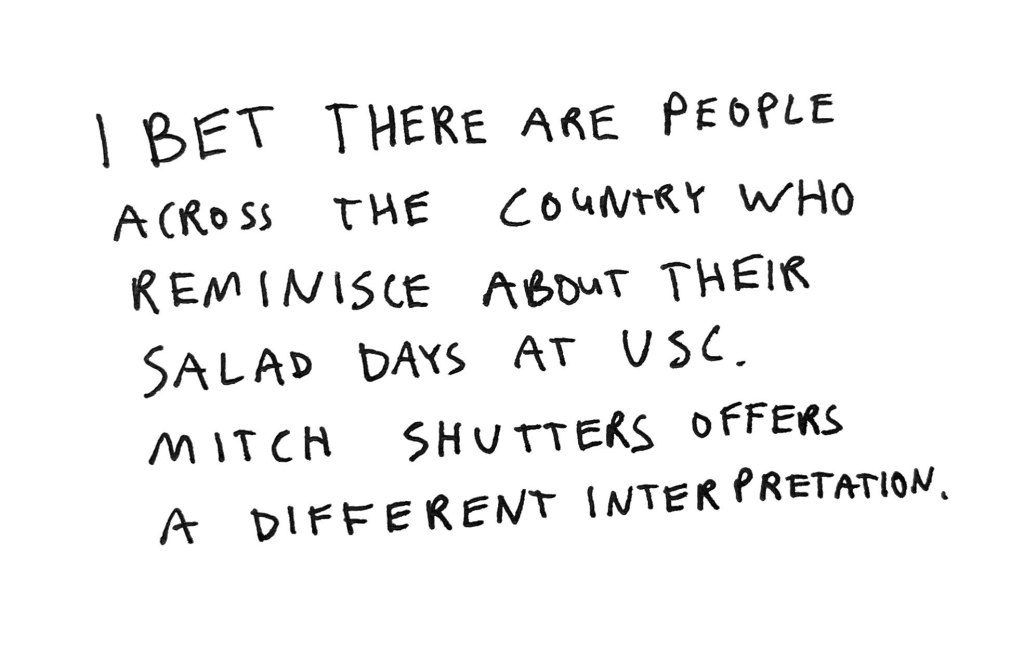 I BET THERE ARE PEOPLE
ACROSS THE COUNTRY WHO
REMINISCE ABOUT THEIR
SALAD DAYS AT USC.
MITCH SHUTTERS OFFERS
A DIFFERENT INTERPRETATION.